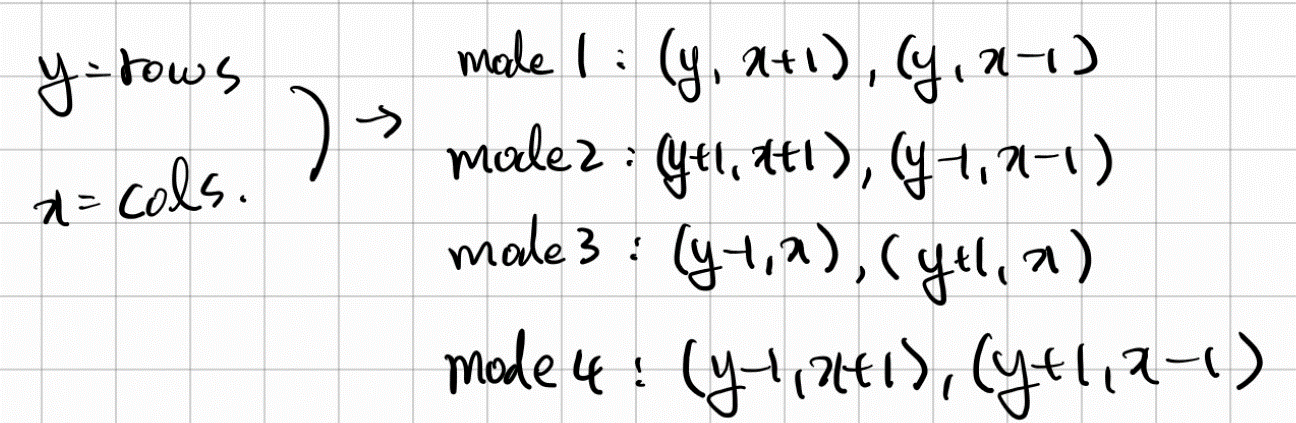 y=rows
x=cols.
) →
mode 1 : (y, x+1), (y, x-1)
mode2 : (y+1, x+1), (y-1, x-1)
mode3 : (y-1, x), (y+1, x)
mode 4 : (y-1, x+1), (y+1, x-1)